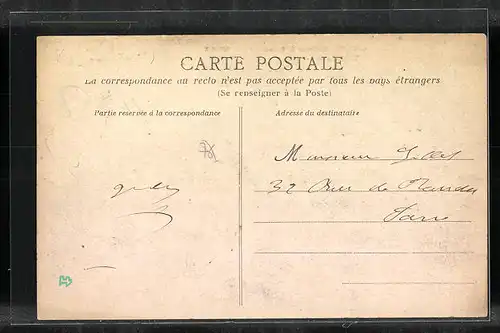 CARTE POSTALE
La correspondance au recto n'est pas acceptée par tous les pays étrangers
(Se renseigner à la Poste)
Partie réservée à la correspondance
Adresse du destinataire
Monsieur
32 Rue de
Paris